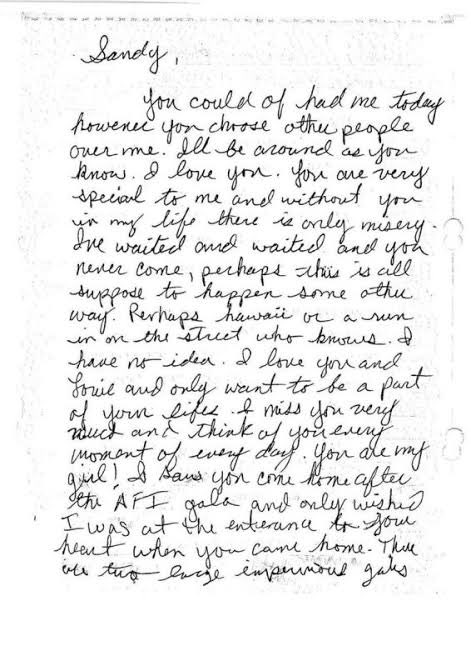 Sandy,
You could of had me today
however you choose other people
over me. I'll be around as you
know. I love you. You are very
special to me and without you
in my life there is only misery.
I've waited and waited and you
never come, perhaps this is all
suppose to happen some other
way. Perhaps hawaii or a run
in on the street who knows. I
have no idea. I love you and
Louie and only want to be a part
of your lifes. I miss you very
much and think of you every
moment of every day. You are my
girl! I saw you come home after
the AFI gala and only wished
I was at the enterance to your
heart when you came home. There
are two large impervious gates